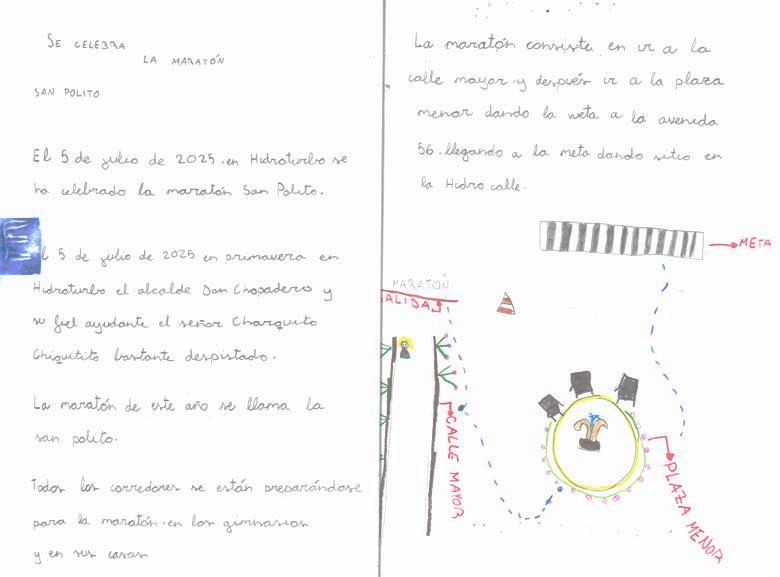 SE CELEBRA
LA MARATÓN
SAN POLITO
El 5 de julio de 2025 en Hidroturbo se
ha celebrado la maratón San Polito.
El 5 de julio de 2025 en primavera en
Hidroturbo el alcalde Don Chopadero y
su fiel ayudante el señor Charquito
Chiquitito bastante despistado.
La maratón de este año se llama la
san polito.
Todos los corredores se están preparándose
para la maratón en los gimnasios
y en sus casas
La maratón consiste en ir a la
calle mayor y después ir a la plaza
menor dando la vuelta a la avenida
56 llegando a la meta dando sitio en
la Hidro calle.
META
MARATÓN
SALIDA
CALLE MAYOR
PLAZA MENOR